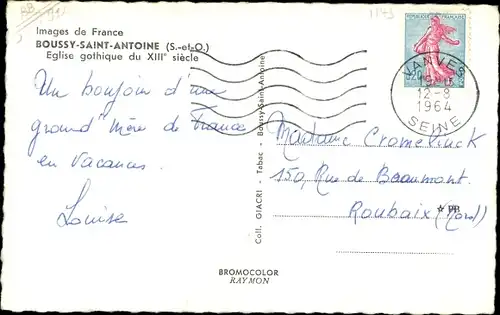 Images de France
BOUSSY-SAINT-ANTOINE (S.-et-O.)
Eglise gothique du XIIIᵉ siècle
REPUBLIQUE FRANÇAISE
0,20
VANVES
12-8
1964
SEINE
Un bonjour d'une
grand'mère de France
en vacances.
Louise
Coll. GIACRI - Tabac - Boussy-Saint-Antoine
Madame Cromelinck
150, Rue de Beaumont.
Roubaix (Nord)
BROMOCOLOR
RAYMON